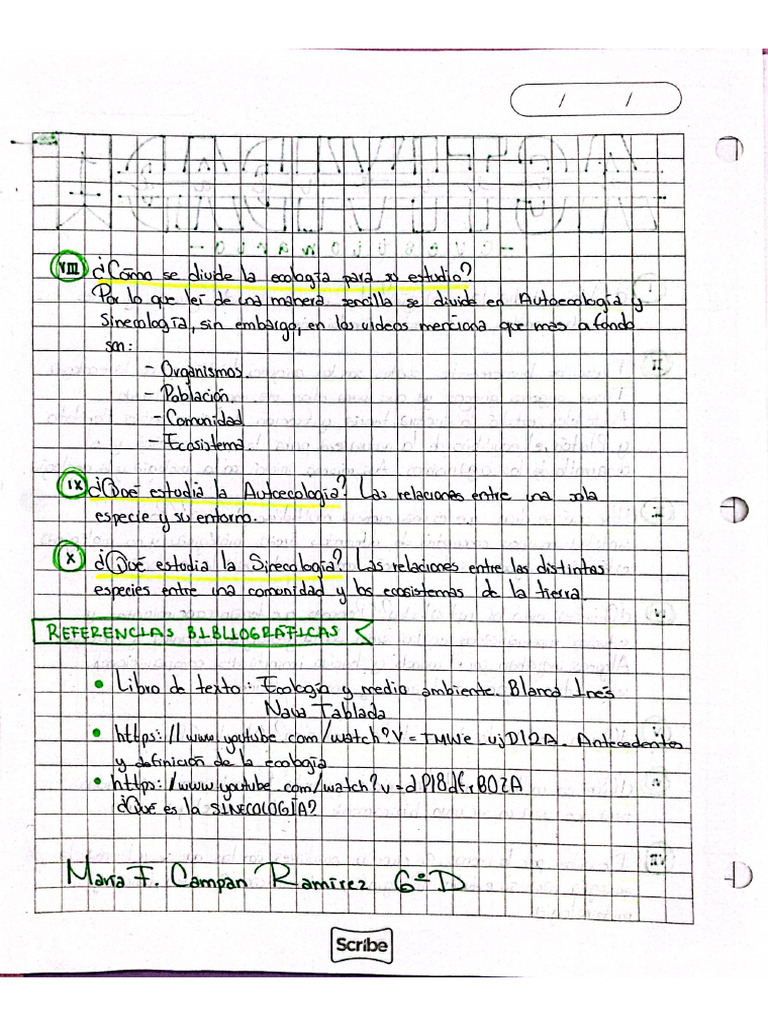 VIII ¿Cómo se divide la ecología para su estudio?
Por lo que leí de una manera sencilla se divide en Autoecología y
Sinecología, sin embargo, en los videos menciona que más a fondo
son:
- Organismos.
- Población.
- Comunidad
- Ecosistema.
IX ¿Qué estudia la Autoecología? Las relaciones entre una sola
especie y su entorno.
X ¿Qué estudia la Sinecología? Las relaciones entre las distintas
especies entre una comunidad y los ecosistemas de la tierra.
REFERENCIAS BIBLIOGRÁFICAS
• Libro de texto: Ecología y medio ambiente. Blanca Inés
Nava Tablada
• https://www.youtube.com/watch?v=TMWe_ujD12A. Antecedentes
y definición de la ecología
• https:/www.youtube.com/watch?v=
¿Qué es la SINECOLOGÍA?
María F. Campan Ramírez 6°D
Scribe